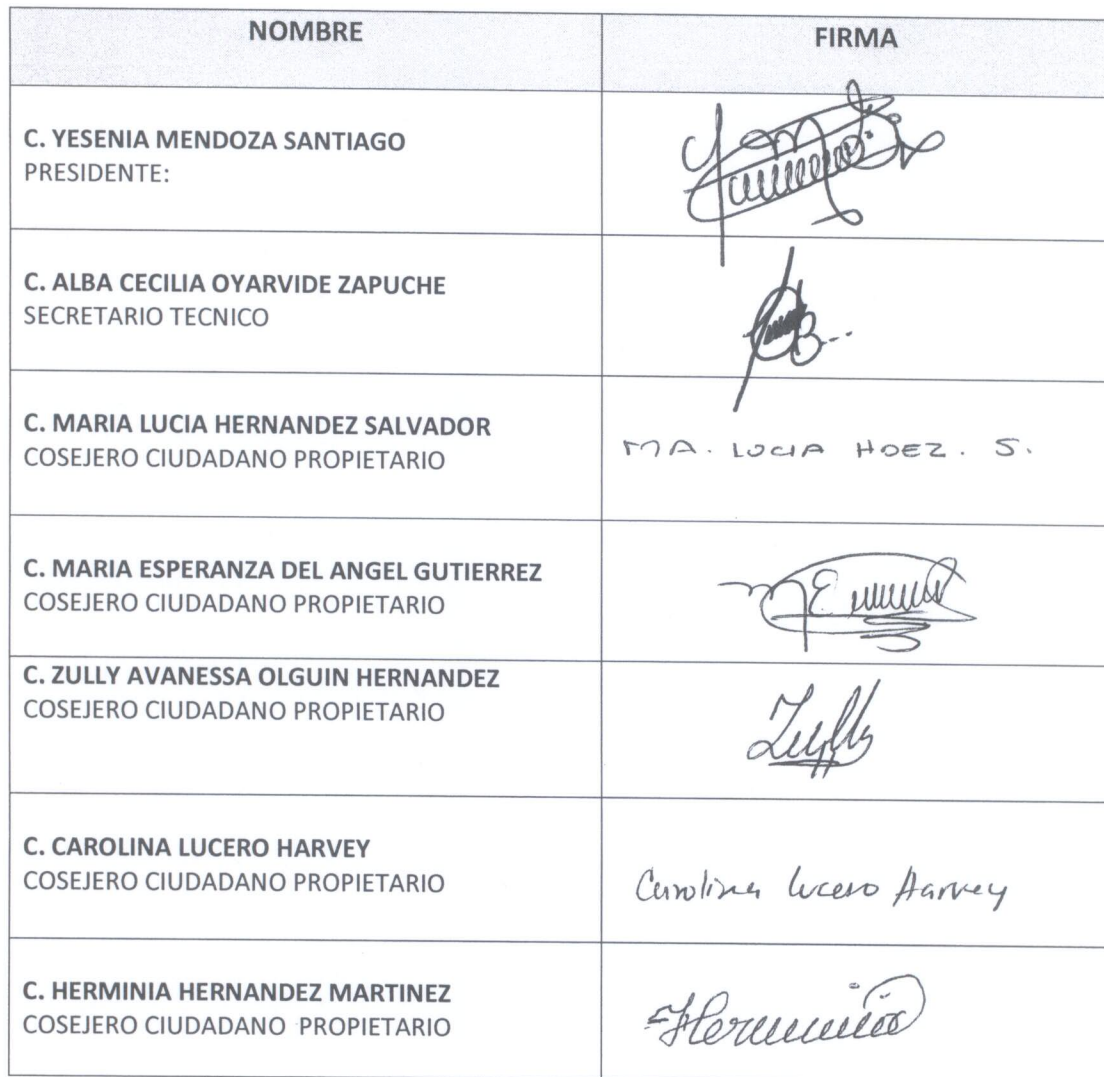 NOMBRE FIRMA
C. YESENIA MENDOZA SANTIAGO
PRESIDENTE:
C. ALBA CECILIA OYARVIDE ZAPUCHE
SECRETARIO TECNICO
C. MARIA LUCIA HERNANDEZ SALVADOR
COSEJERO CIUDADANO PROPIETARIO
MA. LUCIA HDEZ. S.
C. MARIA ESPERANZA DEL ANGEL GUTIERREZ
COSEJERO CIUDADANO PROPIETARIO
C. ZULLY AVANESSA OLGUIN HERNANDEZ
COSEJERO CIUDADANO PROPIETARIO
Zully
C. CAROLINA LUCERO HARVEY
COSEJERO CIUDADANO PROPIETARIO
Carolina Lucero Harvey
C. HERMINIA HERNANDEZ MARTINEZ
COSEJERO CIUDADANO PROPIETARIO
Herminia